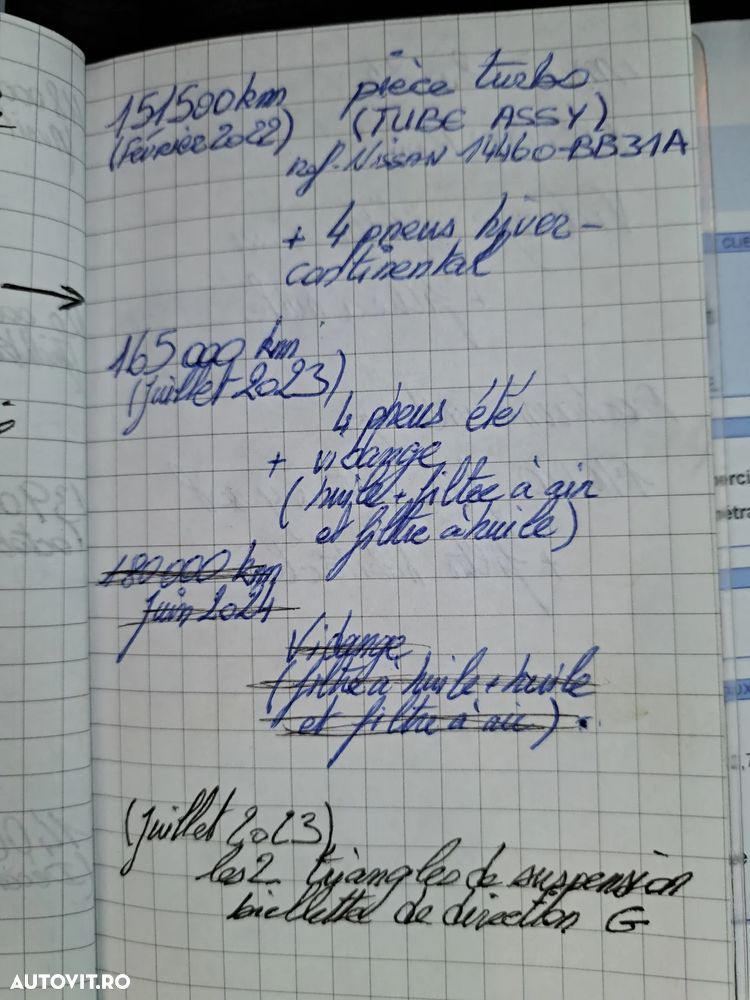 151500 km pièce turbo
(Février 2022) (TUBE ASSY)
réf. NISSAN 14460-BB31A
+ 4 pneus hiver -
continental
165 000 km
(Juillet 2023)
4 pneus été
+ vidange
(huile + filtre à air
et filtre à huile)
180 000 km
Juin 2024
Vidange
(filtre à huile + huile
et filtre à air).
(Juillet 2023)
les 2 triangles de suspension
biellette de direction G
AUTOVIT.RO